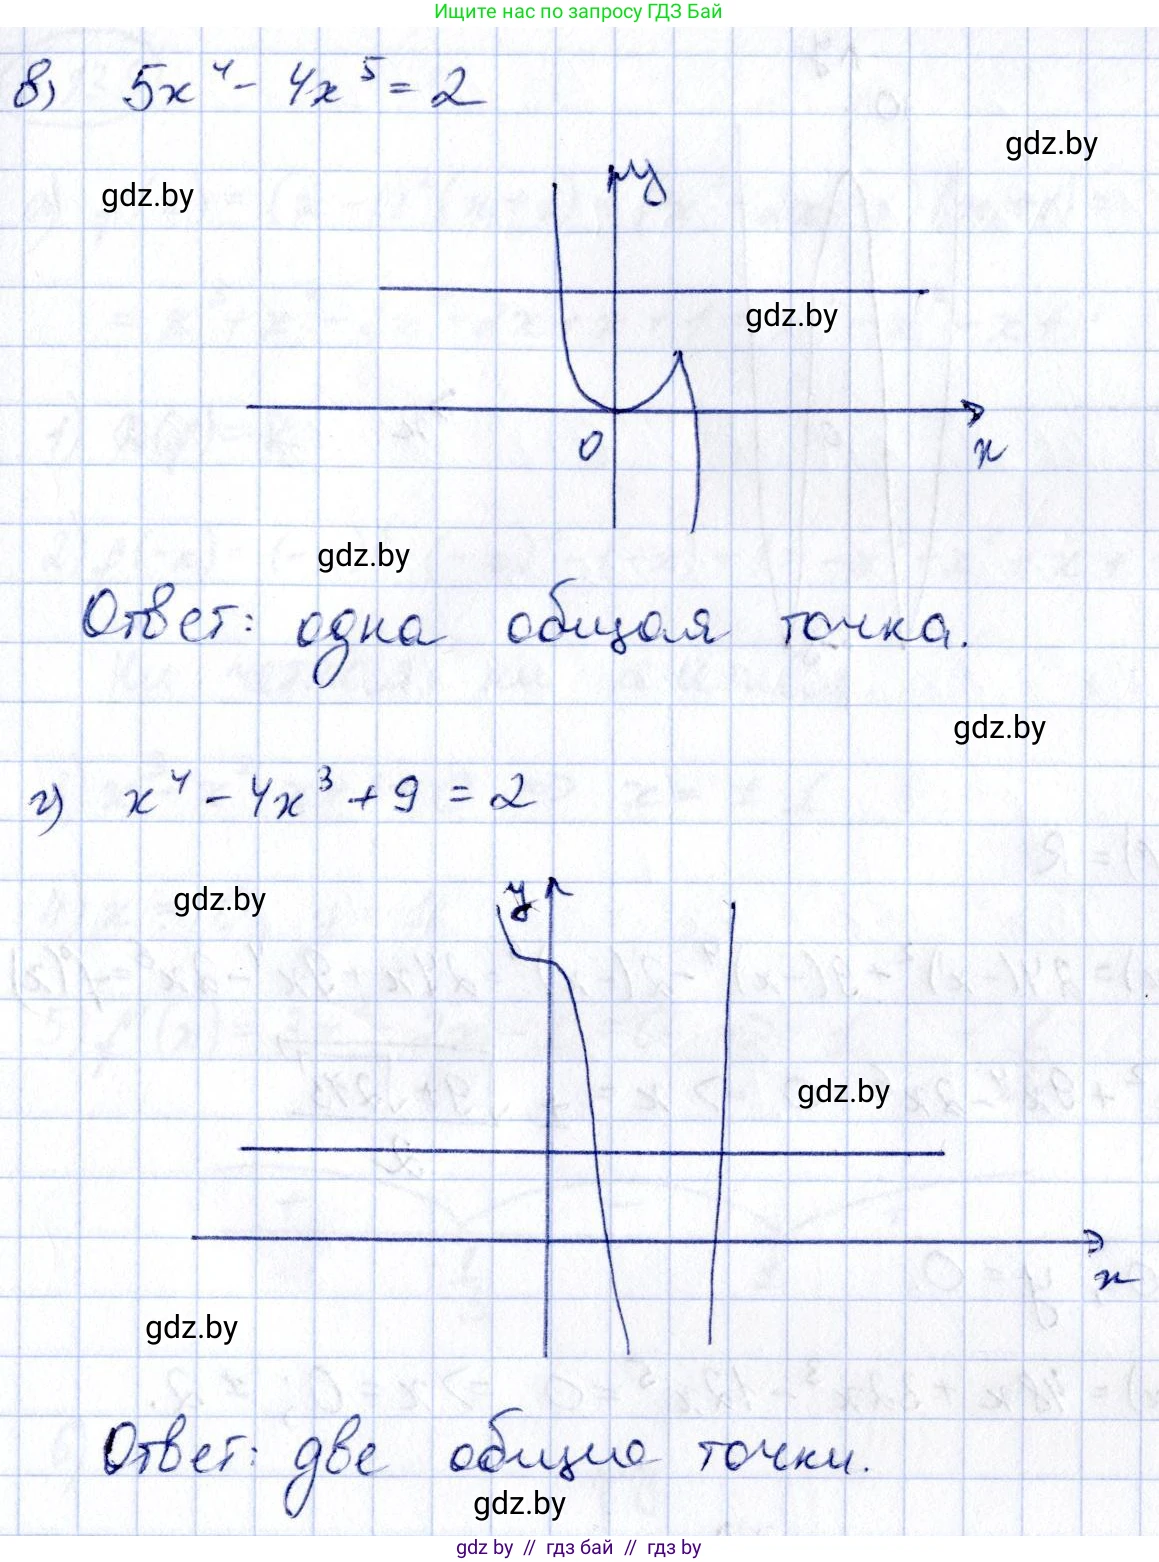 Ищите нас по запросу ГДЗ Бай
в) 5x⁴ - 4x⁵ = 2
gdz.by
gdz.by
y
gdz.by
0
x
gdz.by
Ответ: одна общая точка.
gdz.by
г) x⁴ - 4x³ + 9 = 2
gdz.by
y
gdz.by
x
gdz.by
Ответ: две общие точки.
gdz.by
gdz by // гдз бай // гдз by